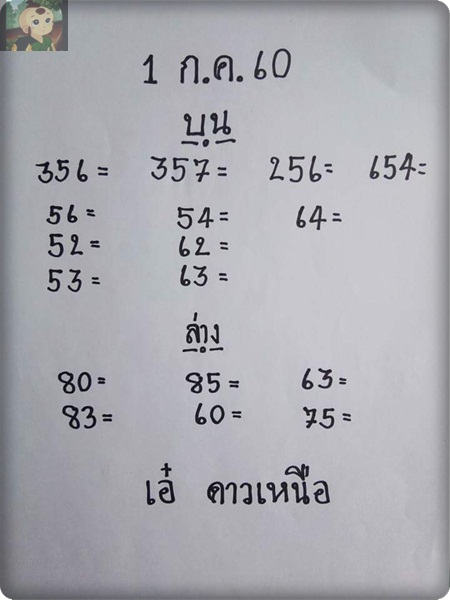 1 ก.ค.60
บน
356= 357= 256= 654=
56= 54= 64=
52= 62=
53= 63=
ล่าง
80= 85= 63=
83= 60= 75=
เอ๋ ดาวเหนือ